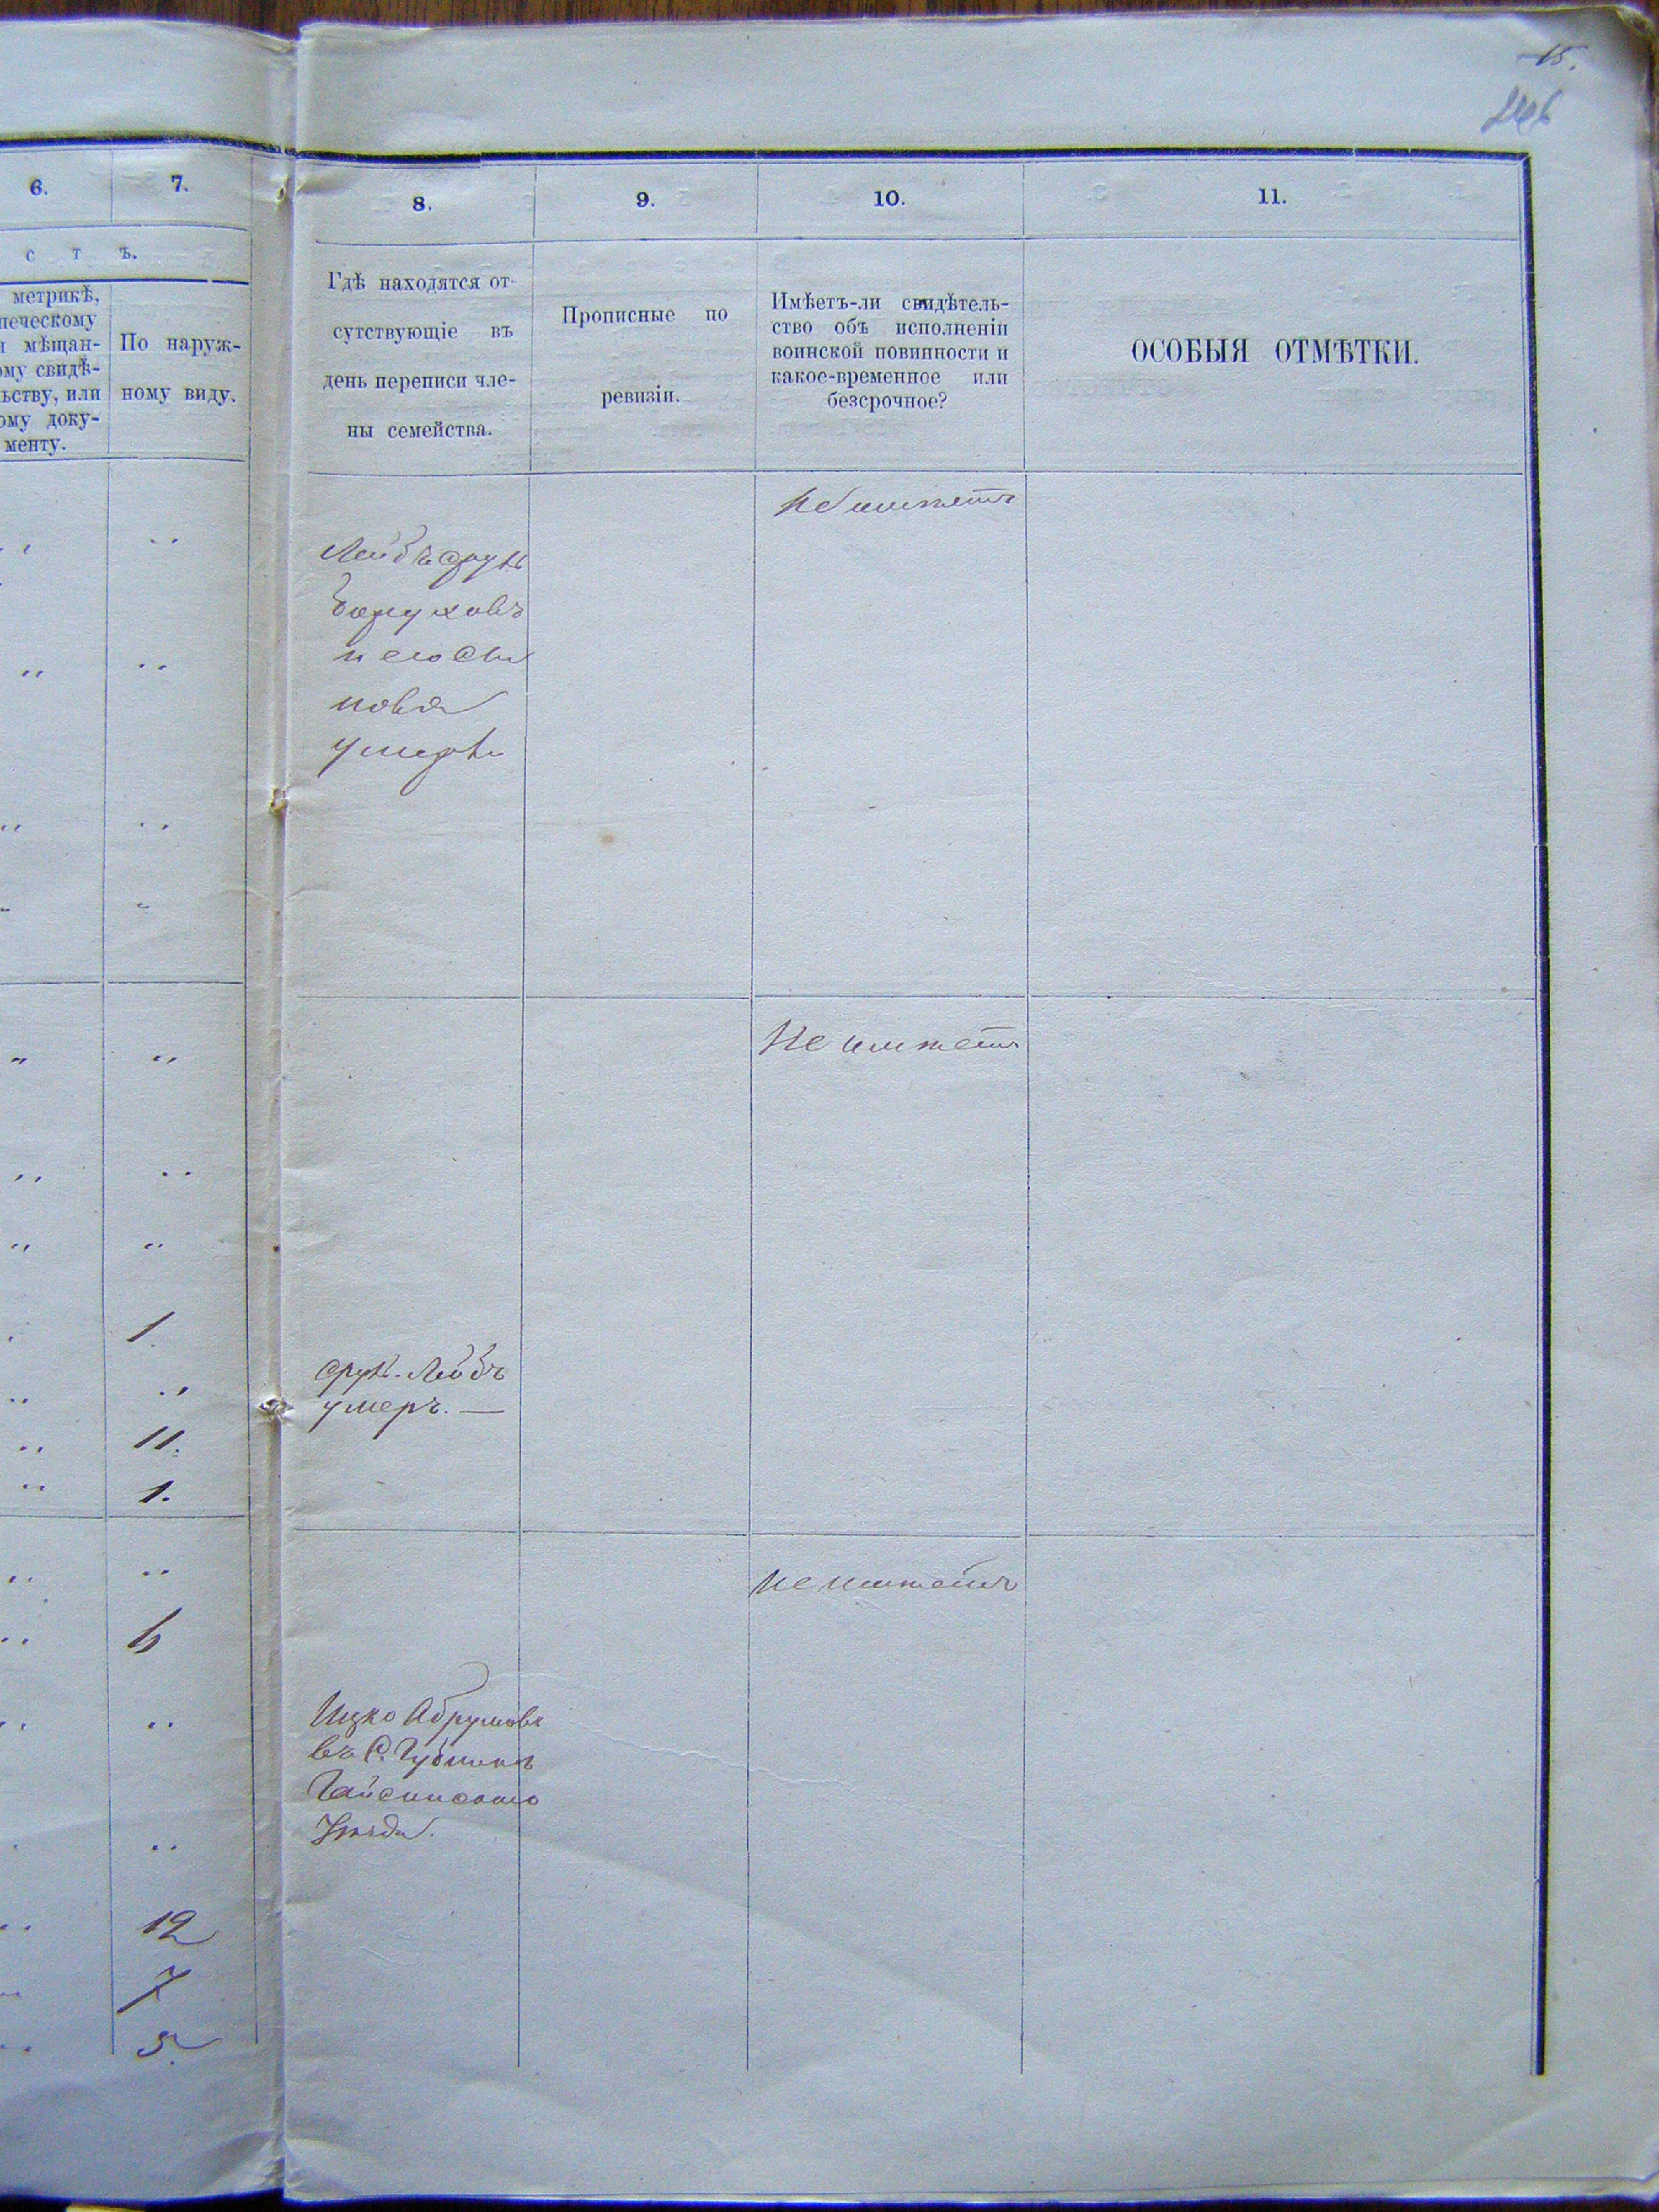 15.
6. 7.
с т ъ.
метрикѣ,
печескому
и мѣщан-
ому свидѣ-
ьству, или
ому доку-
менту.
По наруж-
ному виду.
8. 9. 10. 11.
Гдѣ находятся от-
сутствующіе въ
день переписи чле-
ны семейства.
Прописные по
ревизіи.
Имѣетъ-ли свидѣтель-
ство объ исполненіи
воинской повинности и
какое-временное или
безсрочное?
ОСОБЫЯ ОТМѢТКИ.
Не имѣетъ
Лейбъ Сруль
Боруховъ
и его сы
новья
умерли
Не имѣетъ
1
Сруль Лейбъ
умеръ. —
11.
1.
не имѣетъ
6
Ицко Абрумовъ
въ С. Губникѣ
Гайсинского
Уѣзда.
12
7
5.